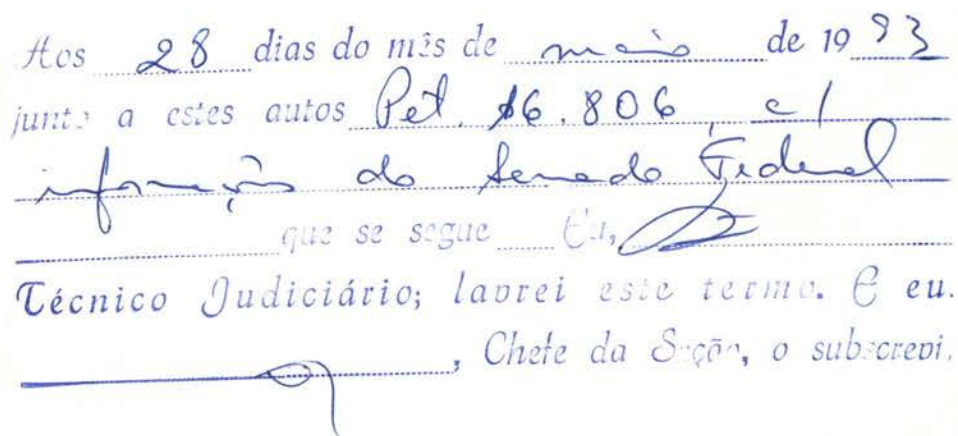 Aos 28 dias do mês de maio de 1993
junto a estes autos Pet. 16.806, c/
informação do Senado Federal
que se segue Eu,
Técnico Judiciário; lavrei este termo. E eu.
, Chefe da Seção, o subscrevi.